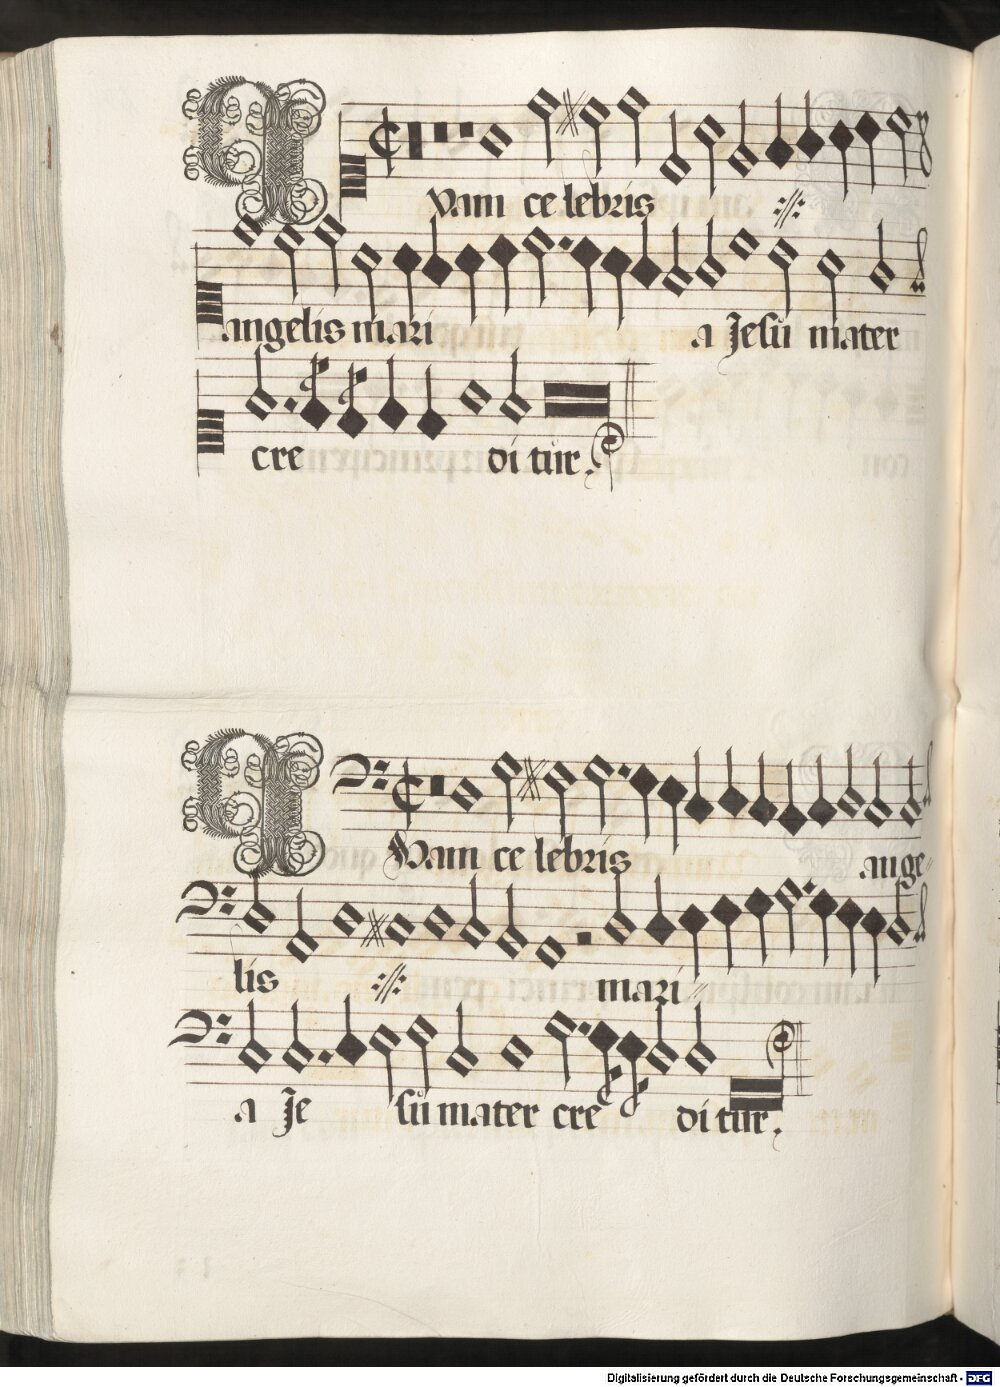 Qvam celebris
angelis maria Jesu mater
creditur.
Qvam celebris ange-
lis mari-
a Jesu mater creditur.
Digitalisierung gefördert durch die Deutsche Forschungsgemeinschaft - DFG